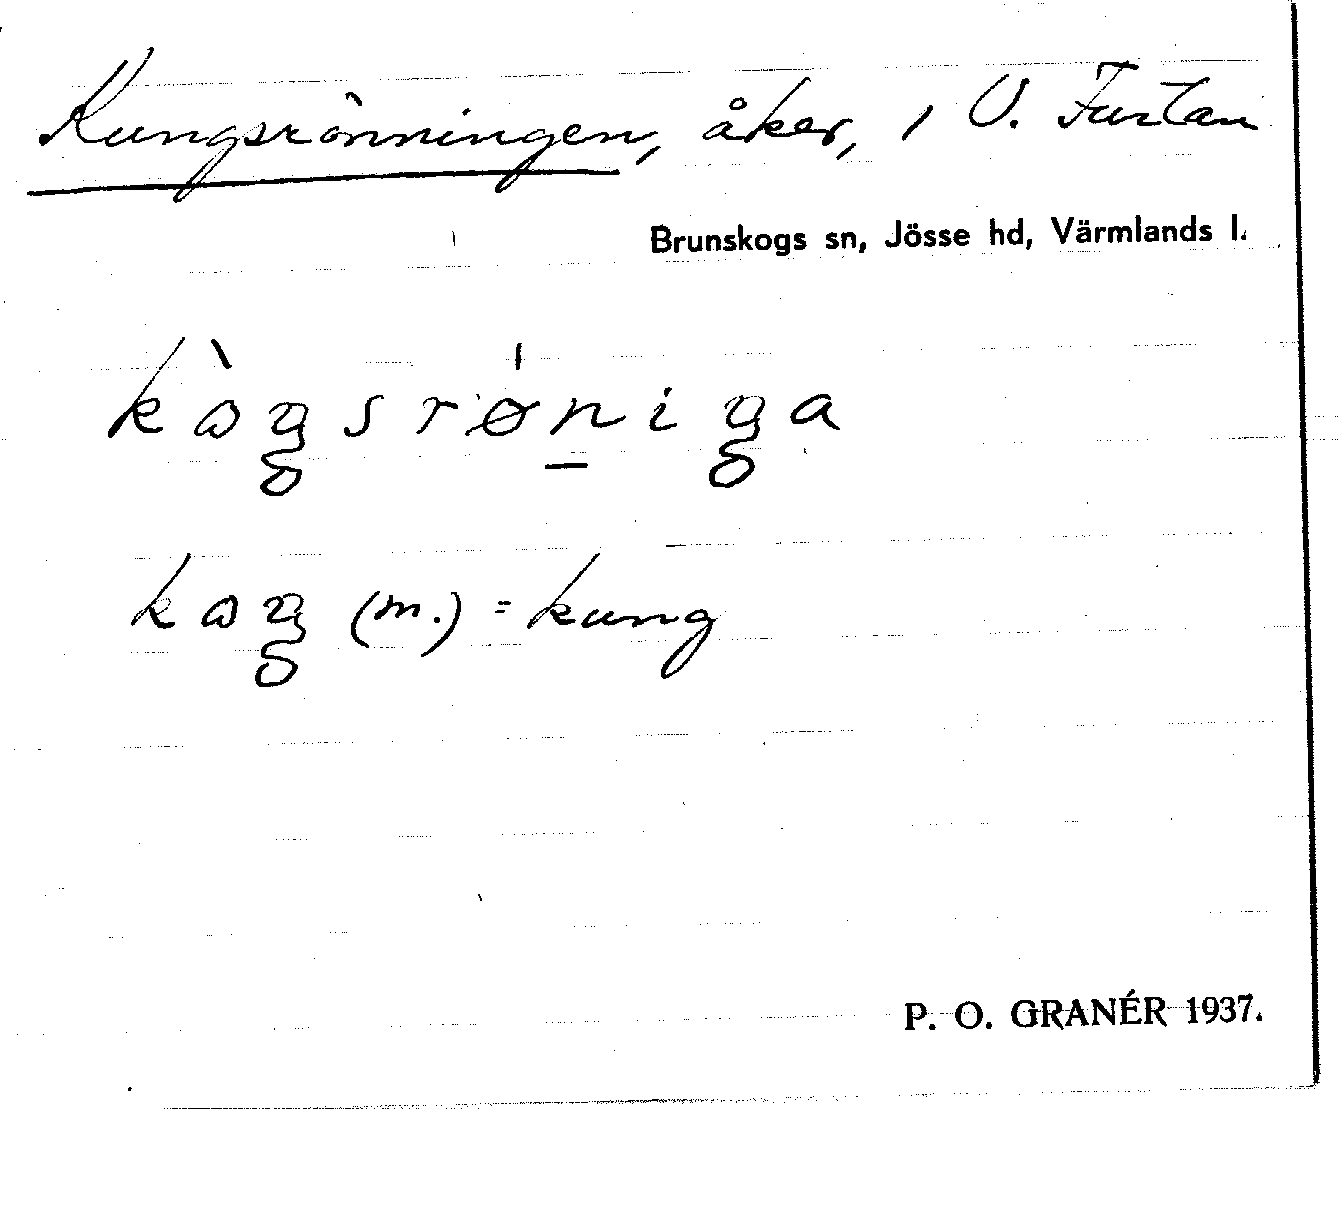 Kungsrönningen, åker, i V. Furtan
Brunskogs sn, Jösse hd, Värmlands l.
kòŋsrøniŋa
koŋ (m.) = kung
P. O. GRANÉR 1937.